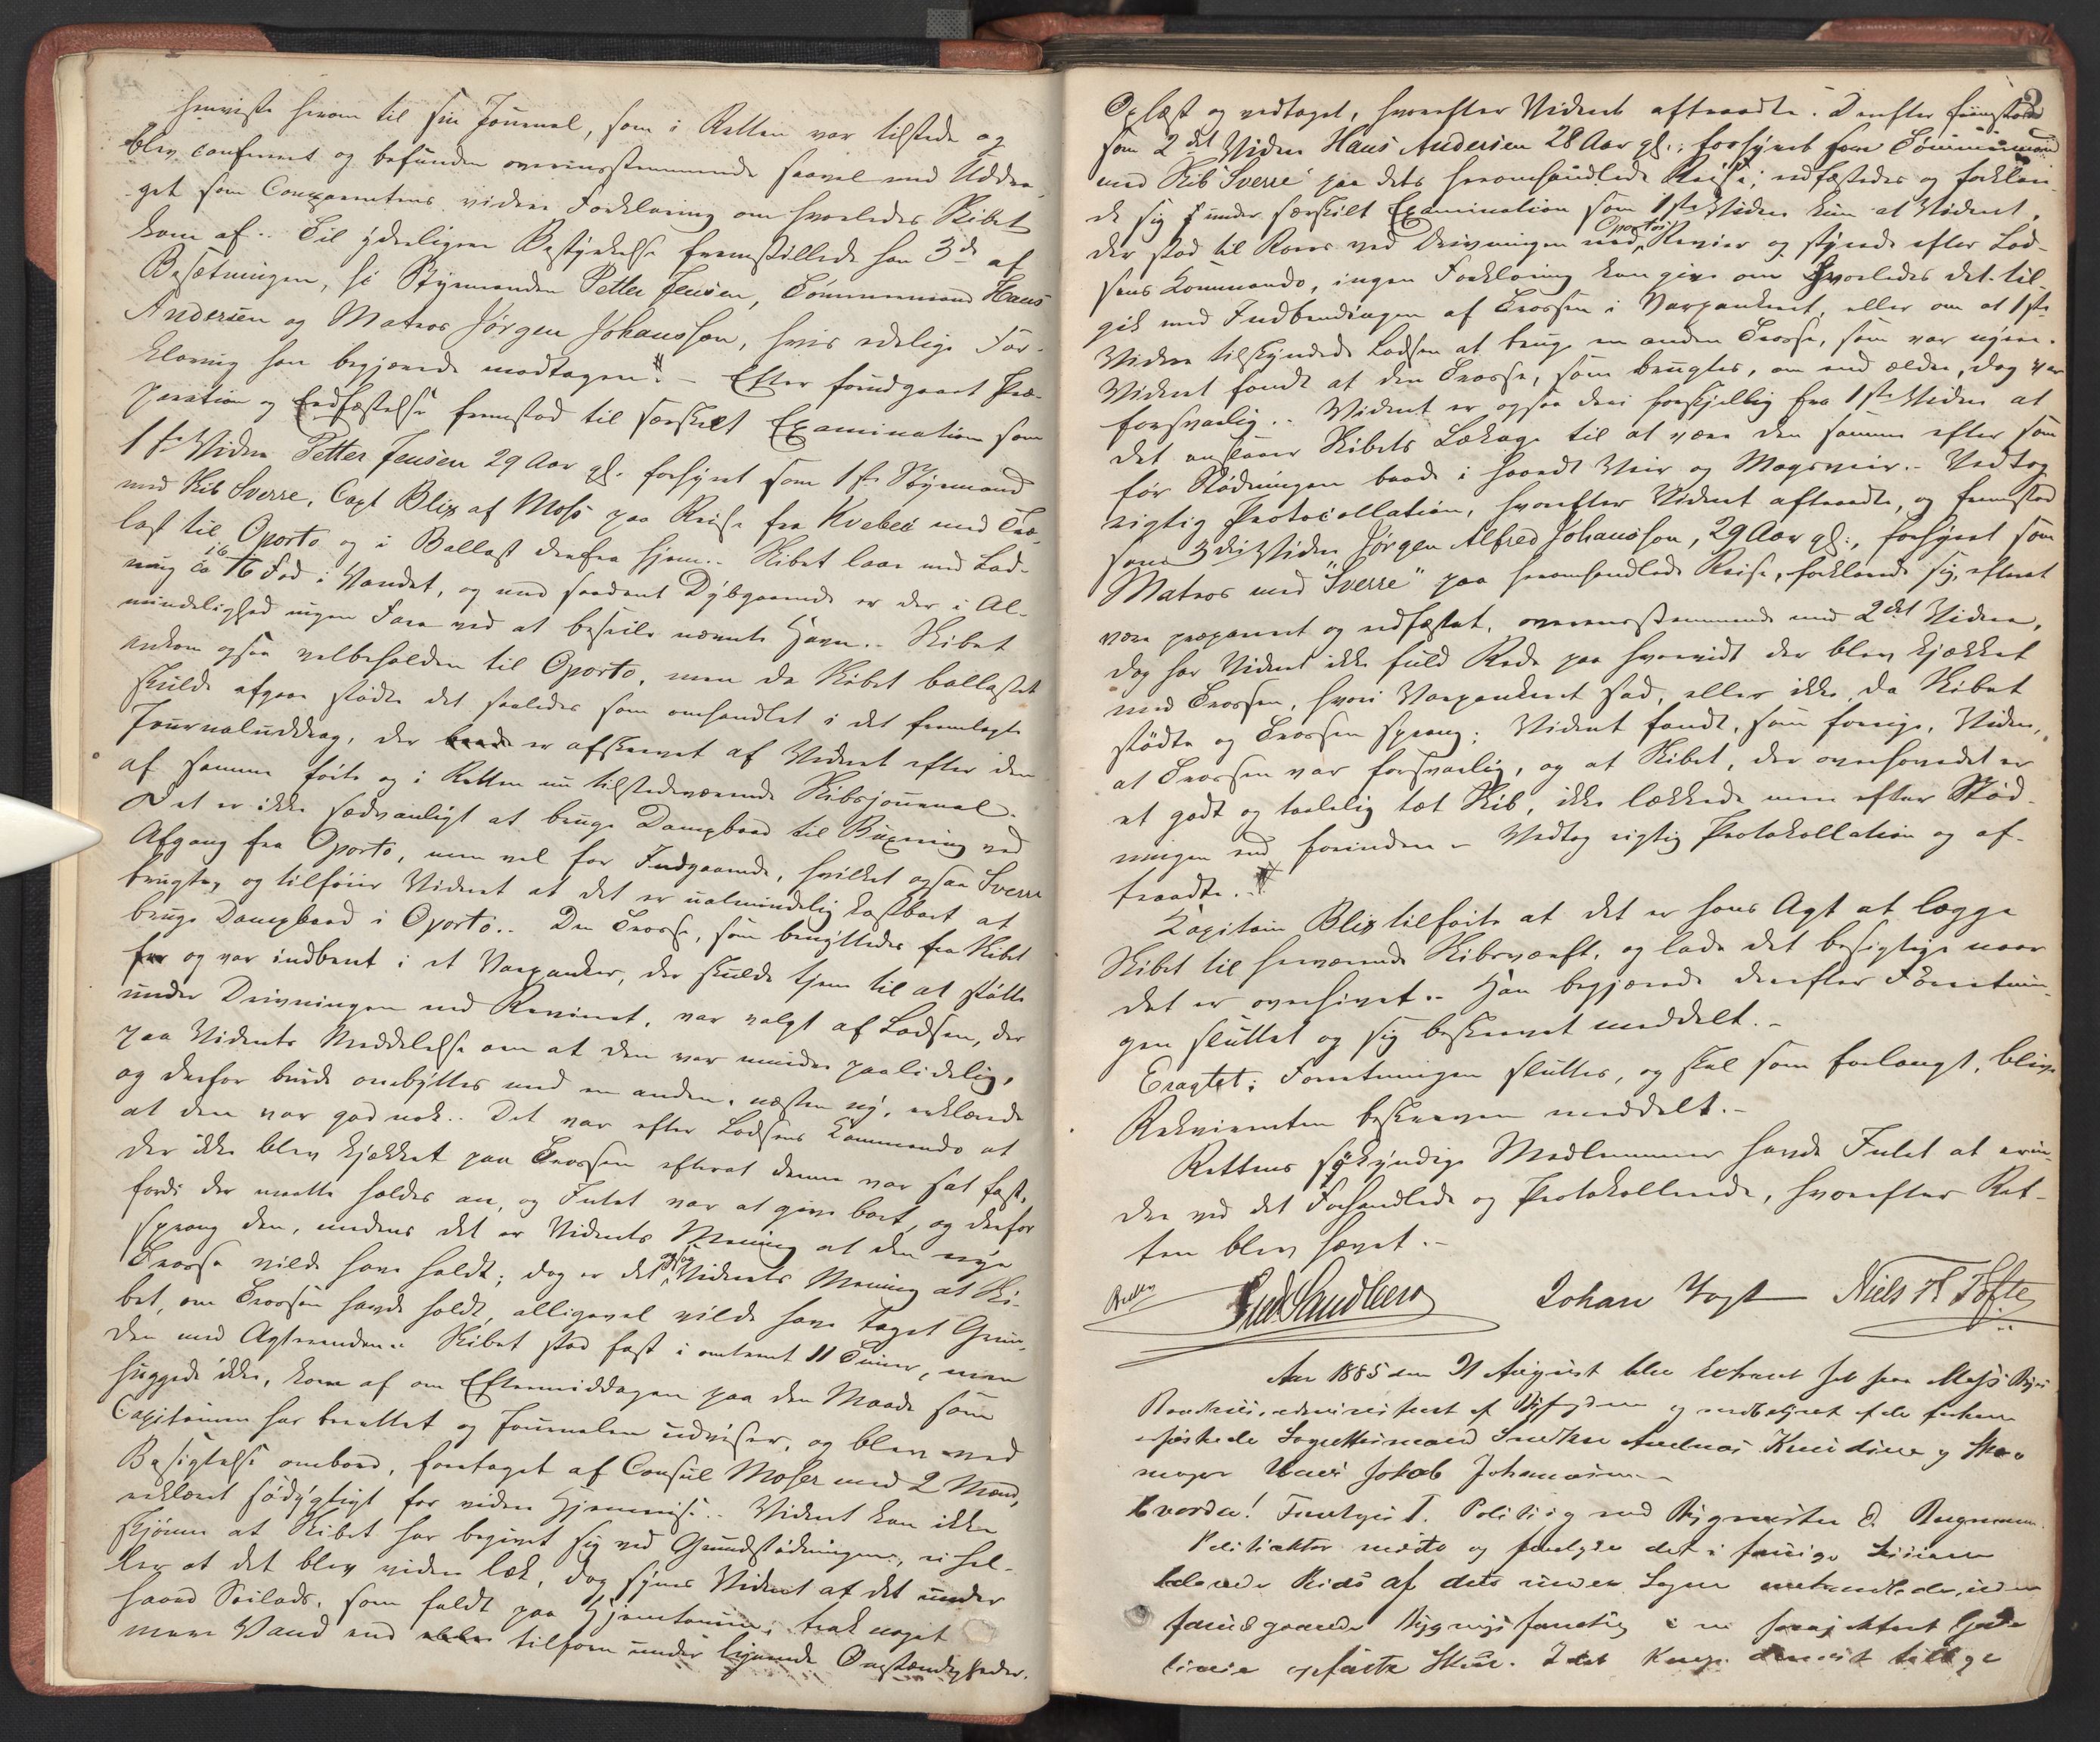 henviste herom til sin Journal, som i Retten var tilstede og
blev confereret og befunden overensstemmende saavel med Uddra-
get som Comparentens videre Forklaring om hvorledes Skibet
kom af.. Til yderligere Bestyrkelse fremstillede han 3de af
Besætningen, sc Styrmanden Petter Jensen, Tømmermand Hans
Andersen og Matros Jørgen Johansson, hvis edelige For-
klaring han begjærede modtagen. – Efter foundgaaet Præ-
paration og Eedfæstelse fremstod til særskilt Examination som
1ste Vidne Petter Jensen 29 Aar gl. forhyret som 1ste Styrmand
med Skib Sverre, Capt Blix af Moss paa Reise fra Kvebec med Træ-
last til Oporto og i Ballast derfra hjem.. Skibet laae med Lad-
ning ca 16 Fod i Vandet, og med saadant Dybgaaende er der i Al-
mindelighed ingen Fare ved at beseile nævnte Havn.. Skibet
ankom ogsaa velbeholden til Oporto, men da Skibet ballastet
skulde afgaae stødte det saaledes som omhandlet i det fremlagte
Journaluddrag, der er afskrevet af Vidnet efter den
af samme førte og i Retten nu tilstedeværende Skibsjournal.
Det er ikke sædvanligt at bruge Dampbaad til Buxering ved
Afgang fra Oporto, men vel for Indgaaende, hvilket ogsaa Sverre
brugte, og tilføier Vidnet at det er ualmindelig kostbart at
bruge Dampbaad i Oporto.. Den Trosse, som benyttedes fra Skibet
og var indbent i et Varpanker, der skulde tjene til at støtte
under Drivningen ned Revieret, var valgt af Lodsen, der
paa Vidnets Meddelelse om at den var mindre paalidelig,
og derfor burde ombyttes med en anden, næsten ny, erklærede
at den var god nok.. Det var efter Lodsens Kommando at
der ikke blev kjækket paa Trossen efterat denne var sat fast,
fordi der maatte holdes an, og Intet var at give bort, og derfor
sprang den, medens det er Vidnets Mening at den nye
Trosse vilde have holdt; dog er det ogsaa Vidnets Mening at Ski-
bet, om Trossen havde holdt, alligevel vilde have taget Grun-
den med Agterenden.. Skibet stod fast i omtrent 11 Timer, men
huggede ikke, kom af om Eftermiddagen paa den Maade som
Capitainen har berettet og Journalen udviser, og blev ved
Besigtelse ombord, foretaget af Consul Moser med 2 Mænd,
erklæret sødygtigt for videre Hjemreise.. Vidnet kan ikke
skjønne at Skibet har begivet sig ved Grundstødningen, ei hel-
ler at det blev videre læk, dog synes Vidnet at det under
haard Seilads, som faldt paa Hjemturen, trak noget
mere Vand end tilforn under lignende Omstændigheder.
2
Oplæst og vedtaget, hvorefter Vidnet aftraadte. Derefter fremstod
som 2det Vidne Hans Andersen 28 Aar gl., forhyret som Tømmermand
med Skib "Sverre" paa dets heromhandlede Reise; edfæstedes og forklare-
de sig under særskilt Examination som 1ste Vidne kun at Vidnet,
der stod til Rors ved Drivningen ned Oportos Revier og styrede efter Lod-
sens Kommando, ingen Forklaring kan give om Hvorledes det til-
gik med Indbendingen af Trossen i Varpankeret, eller om at 1ste
Vidne tilskyndede Lodsen at bruge en anden Trosse, som var nyere.
Vidnet fandt at den Trosse, som brugtes, om end ældre, dog var
forsvarlig.. Vidnet er ogsaa deri forskjellig fra 1ste Vidne at
det anslaaer Skibets Lækage til at være den samme efter som
før Stødningen baade i haardt Veir og Magsveir.. Vedtog
rigtig Protocollation, hvorefter Vidnet aftraadte, og fremstod
som 3die Vidne Jørgen Alfred Johansson, 29 Aar gl., forhyret som
Matros med "Sverre" paa heromhandlede Reise, forklarede sig, efterat
være præpareret og edfæstet, overensstemmende med 2det Vidne,
dog har Vidnet ikke fuld Rede paa hvorvidt der blev kjækket
med Trossen, hvori Varpankeret stod, eller ikke da Skibet
stødte og Trossen sprang; Vidnet fandt, som forrige Vidne,
at Trossen var forsvarlig, og at Skibet, der overhovedet er
et godt og taalelig tæt Skib, ikke lækkede mere efter Stød-
ningen end forinden – Vedtog rigtig Protokollation og af-
traadte. –
Kapitain Blix tilføite at det er hans Agt at lægge
Skibet til herværende Skibsværft, og lade det besigtige naar
det er overhivet.. Han begjærede derefter Forretnin-
gen sluttet og sig beskrevet meddelt. –
Eragtet: Forretningen sluttes, og skal som forlangt, blive
Rekvirenten beskreven meddelt. –
Rettens søkyndige Medlemmer havde Intet at erin-
dre ved det Forhandlede og Protokollerede, hvorefter Ret-
ten blev hævet. –
Fred Sandberg Johan Vogt Niels H Tofte
Aar 1885 den 21 August blev Extraret sat paa Moss By
administreret af Byfogden og medbetjent af de
Laugrettesmænd Snedker Andreas Knudsen og Sko-
mager Hans Jakob Johannesen
Hvorda! Foretoges I. Politisag mod Bygmester
Politiaktor mødte og fremlagde det i forrige
af dets
Bygningsforretning
opførte Skur. I det